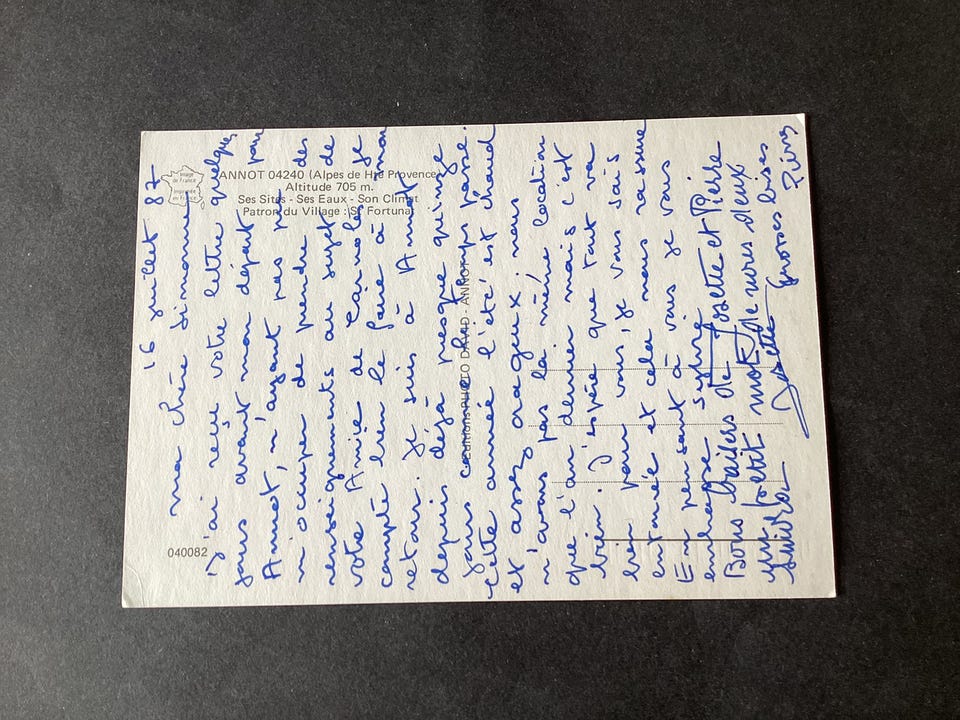 16 juillet 87
ma chère Simone
J'ai reçu votre lettre quelques
jours avant mon départ pour
Annot, n'ayant pas pu
m'occuper de prendre des
renseignements au sujet de
votre Amie de Carnolès je
compte bien le faire à mon
retour. Je suis à Annot
depuis déjà presque quinze
jours comme le temps passe.
cette année l'été est chaud
et assez orageux; nous
n'avons pas la même location
que l'an dernier mais c'est
bien. J'espère que tout va
bien pour vous, je vous sais
entourée et cela nous rassure
En pensant à vous je vous
embrasse Sylvie
Bons baisers de Josette et Pierre
un petit mot de nous deux
suivra Josette Grosses bises
Pierre
Image de France
Imprimée en France
ANNOT 04240 (Alpes de Hte Provence)
Altitude 705 m.
Ses Sites - Ses Eaux - Son Climat
Patron du Village : St Fortunat
Editions PHOTO DAVID - ANNOT
040082